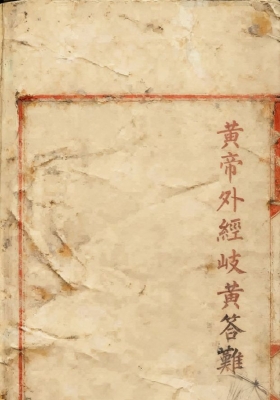 黃帝外經岐黃答難